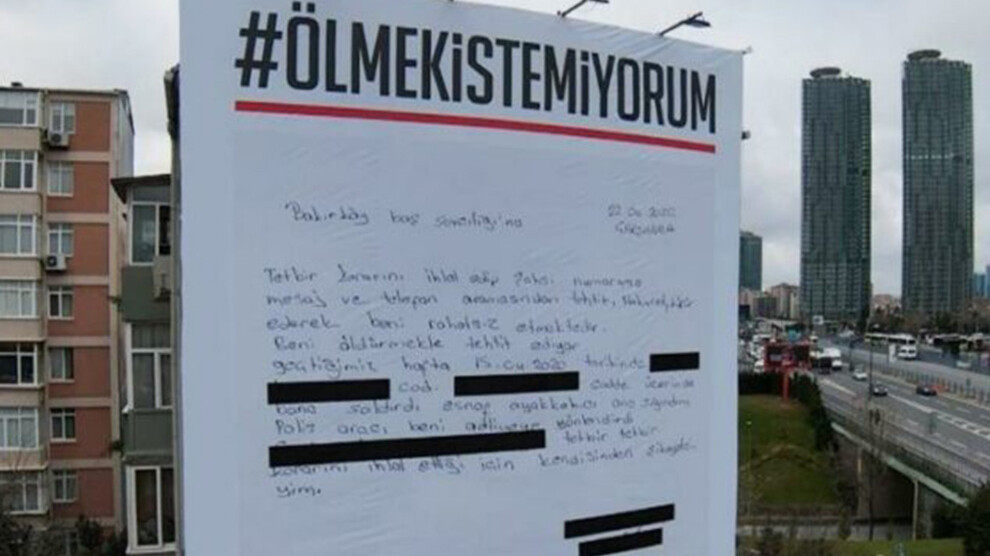 #ÖLMEKiSTEMiYORUM
Bakırköy baş savcılığı'na
22.04.2020
ÇARŞAMBA
Tetbir kararını ihlal edip şahsi numarama
mesaj ve telefon aramasından tehtit,
ederek beni rahatsız etmektedir.
Beni öldürmekle tehtit ediyor
geçtiğimiz hafta 15.04.2020 tarihinde
cad. cadde üzerinde
bana saldırdı esnaf ayakkabıcı sığındım
Polis aracı beni adliyeye yönlendirdi
tetbir tetbir
kararını ihlal ettiği için kendisinden şikayetçi-
yim.